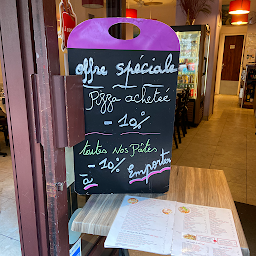 offre spéciale
Pizza acheteé
- 10%
toutes Nos Pâtes
à - 10% Emporter